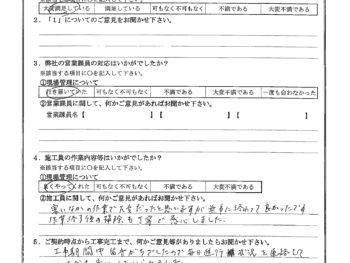 大変満足している 満足している 可もなく不可もなく 不満である 大変不満である
2．「1」についてのご意見をお聞かせ下さい。
3．弊社の営業課員の対応はいかがでしたか？
※該当する項目に○を記入して下さい。
①現場管理について
行き届いていた 可もなく不可もなく 不満である 大変不満である 一度も会わなかった
②営業課員に関して、何かご意見があればお聞かせ下さい。
営業課員名【 】【 】【 】
4．施工員の作業内容等はいかがでしたか？
※該当する項目に○を記入して下さい。
①現場管理について
良くやってくれた 可もなく不可もなく 不満である 大変不満である
②施工員に関して、何かご意見があればお聞かせ下さい。
寒いなかの作業で大変だったと思いますが無事に終わって良かったです
作業終了後の掃除も丁寧で感心しました。
5．ご契約時点から工事完工まで、何かご意見等がありましたらお聞かせ下さい。
工事期間中留守がちでしたので毎日進行状況を連絡して